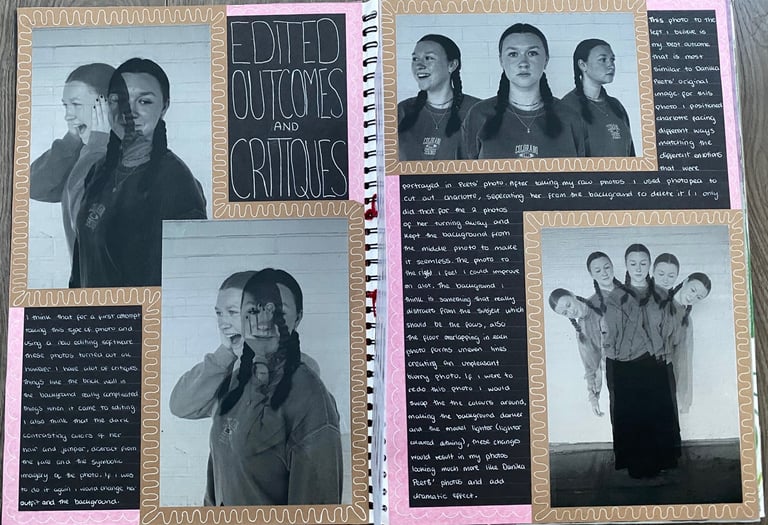 EDITED
OUTCOMES
AND
CRITIQUES
I think that for a first attempt
taking this type of photo and
using a new editing software
these photos turned out ok
however I have alot of critiques
things like the brick wall in
the background really complicated
things when it came to editing
I also think that the dark
contrasting colors of her
hair and jumper, distract from
the face and the symbolic
imagery of the photo. If I was
to do it again I would change her
outfit and the background.
COLORADO
COLORADO
COLORADO
This photo to the
left I believe is
my best outcome
that is most
similar to Danika
Peets' original
image. For this
photo I positioned
charlotte facing
different ways
matching the
different emotions
that were
portrayed in Peets' photo. After taking my raw photos I used photopea to
cut out charlotte, seperating her from the background to delete it (I only
did that for the 2 photos
of her turning away and
kept the background from
the middle photo to make
it seamless. The photo to
the right I feel I could improve
on alot. The background I
think is something that really
distracts from the subject which
should be the focus, also
the floor overlapping in each
photo forms uneven lines
creating an unpleasant
blurry photo. If I were to
redo this photo I would
swap the the colours around,
making the background darker
and the model lighter (lighter
coloured clothing), these changes
would result in my photos
looking much more like Danika
Peets' photos and add
dramatic effect.